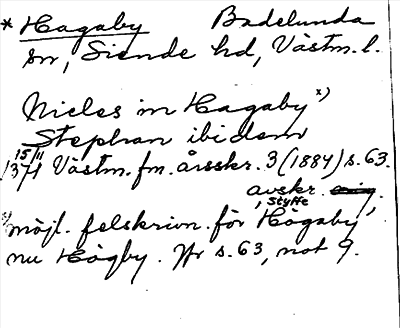 * Hagaby Badelunda
sn, Siende hd, Västm. l.
Nicles in Hagaby x)
Stephan ibidem
15/11 1371 Västm. fm. årsskr. 3 (1884) s. 63.
avskr.
Styffe
x) möjl. felskrivn. för Högaby,
nu Högby. Jfr s. 63, not 9.